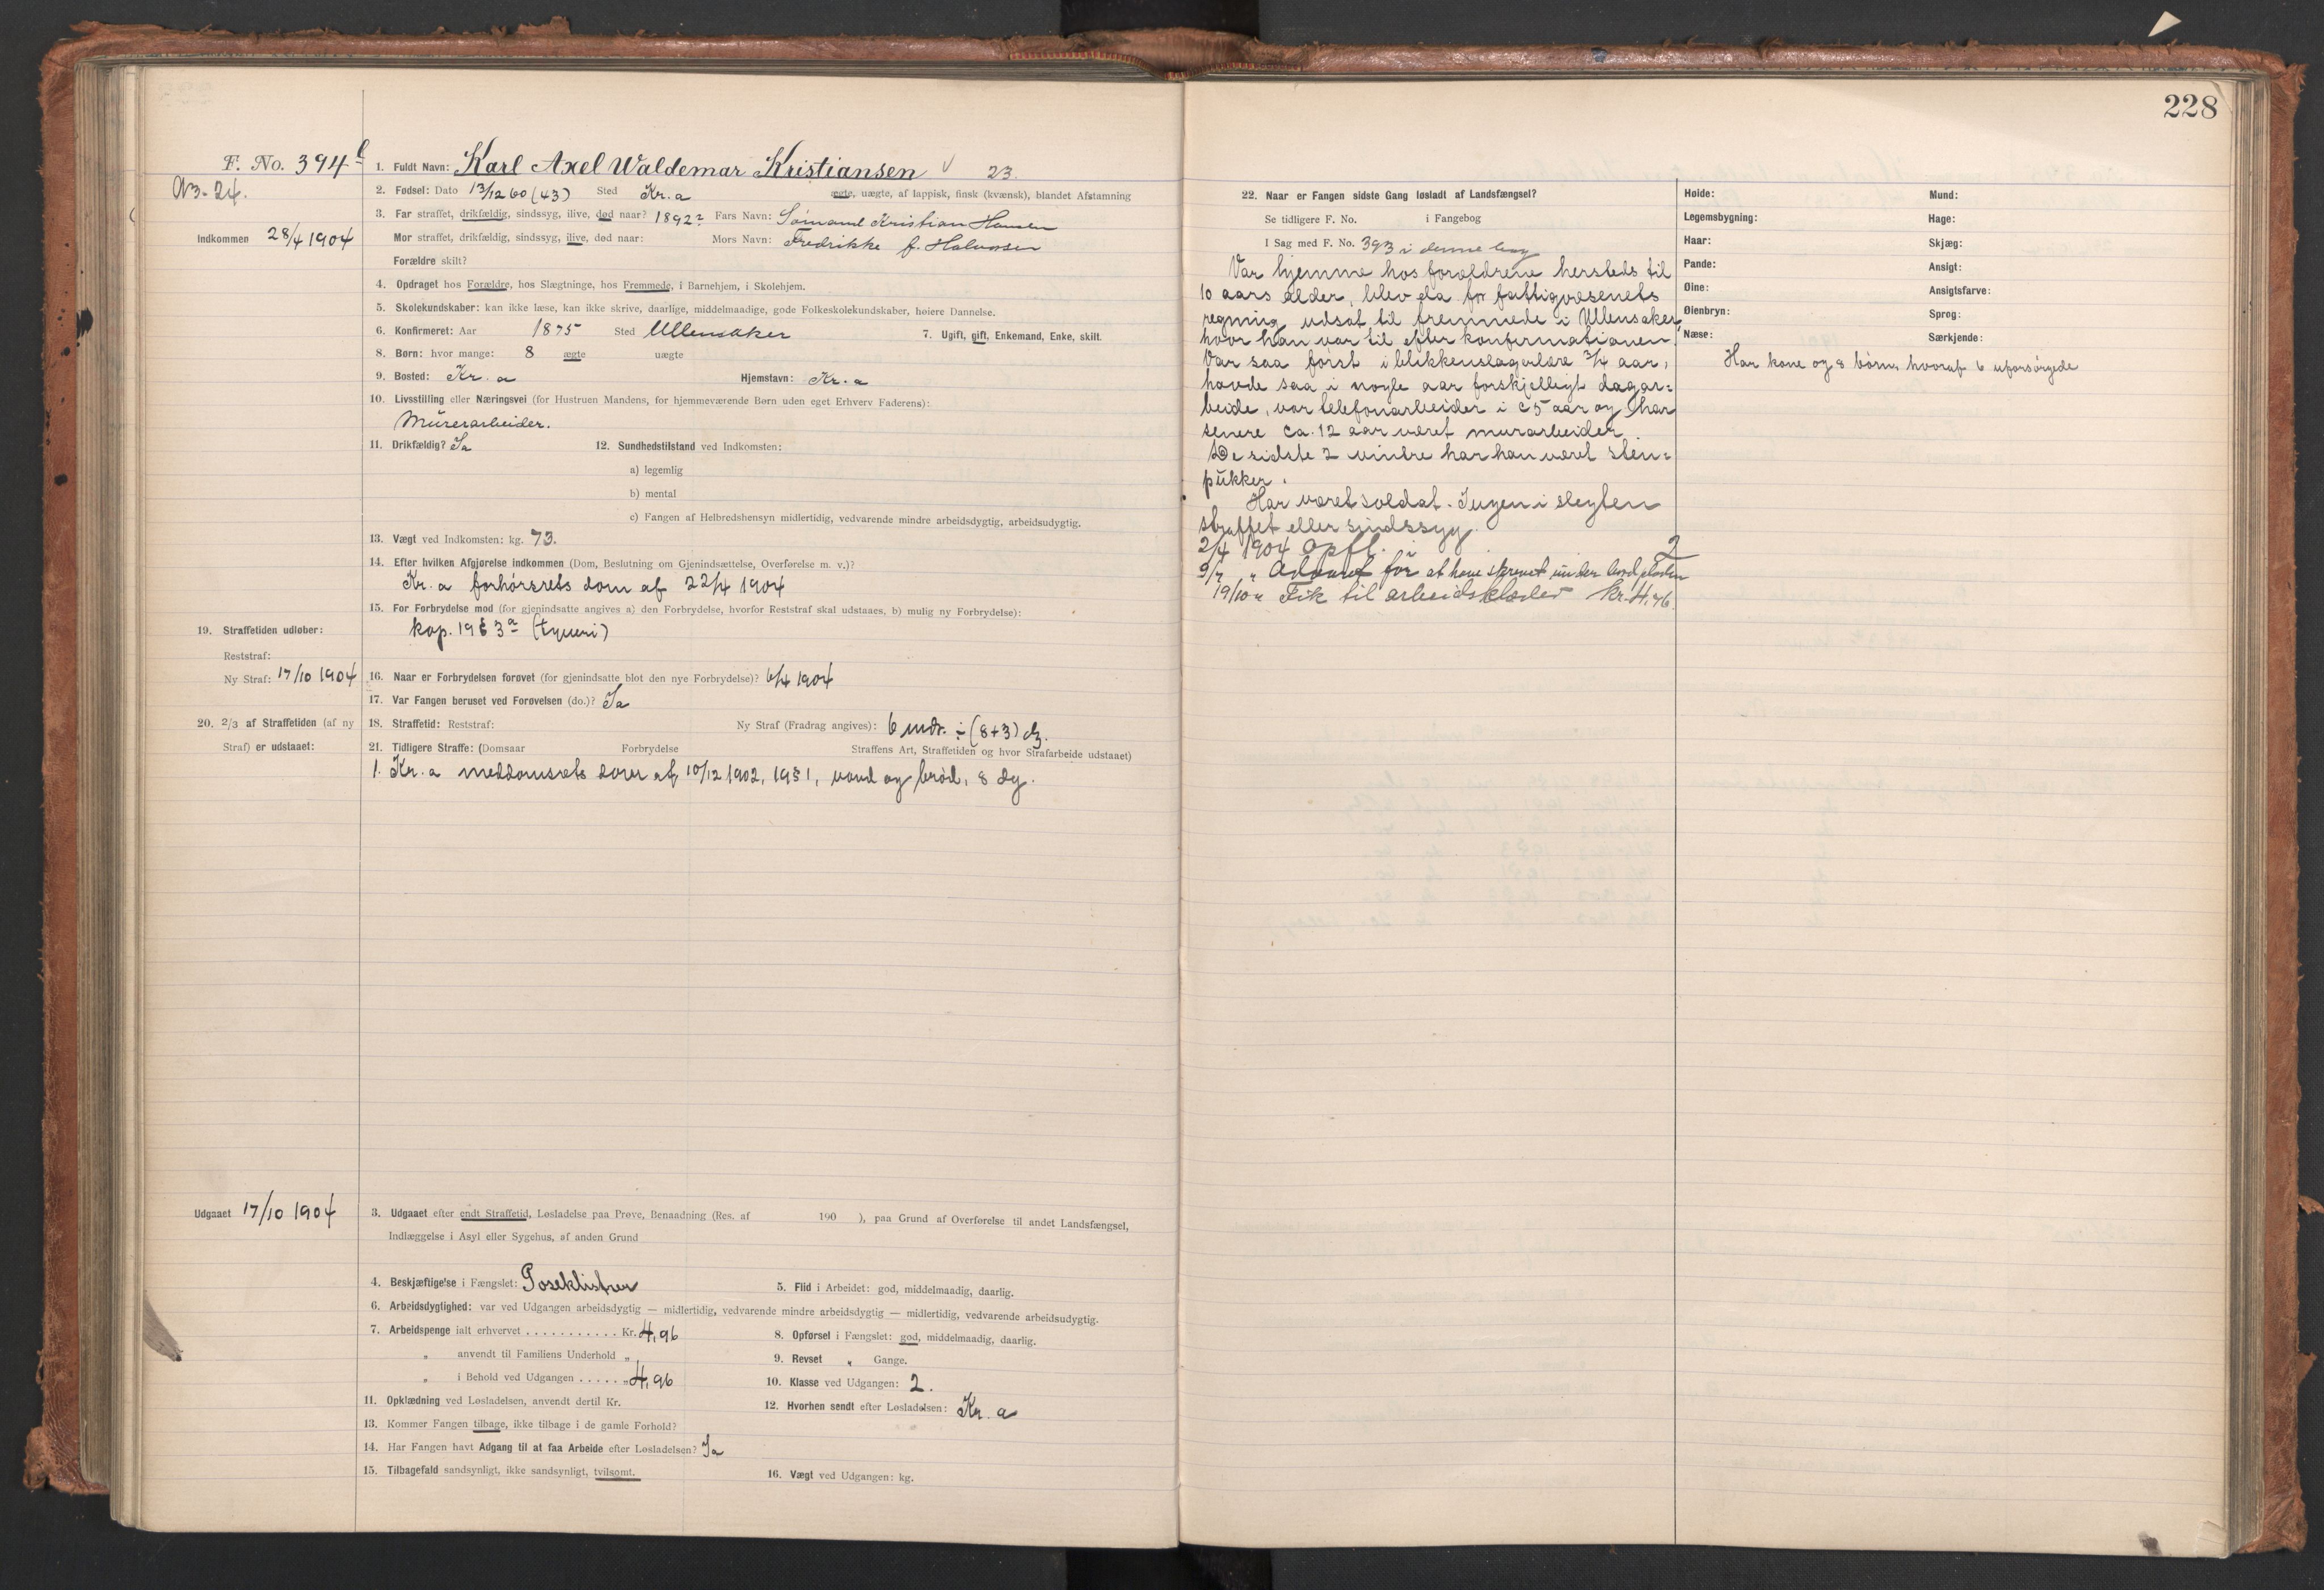 228
F. No. 394
1. Fuldt Navn: Karl Axel Waldemar Kristiansen 23.
N3-24.
2. Fødsel: Dato 13/12 60 (43) Sted Kr.a ægte, uægte, af lappisk, finsk (kvænsk), blandet Afstamning
Indkommen 28/4 1904
3. Far straffet, drikfældig, sindssyg, ilive, død naar? 1892? Fars Navn: Sømand Kristian Hansen
Mor straffet, drikfældig, sindssyg, ilive, død naar: Mors Navn: Fredrikke f. Halvorsen
Forældre skilt?
4. Opdraget hos Forældre, hos Slægtninge, hos Fremmede, i Barnehjem, i Skolehjem.
5. Skolekundskaber: kan ikke læse, kan ikke skrive, daarlige, middelmaadige, gode Folkeskolekundskaber, høiere Dannelse.
6. Konfirmeret: Aar 1875 Sted Ullensaker 7. Ugift, gift, Enkemand, Enke, skilt.
8. Børn: hvor mange: 8 ægte uægte
9. Bosted: Kr.a Hjemstavn: Kr.a
10. Livsstilling eller Næringsvei (for Hustruen Mandens, for hjemmeværende Børn uden eget Erhverv Faderens):
Murerarbeider.
11. Drikfældig? Ja 12. Sundhedstilstand ved Indkomsten:
a) legemlig
b) mental
c) Fangen af Helbredshensyn midlertidig, vedvarende mindre arbeidsdygtig, arbeidsudygtig.
13. Vægt ved Indkomsten: kg. 73.
14. Efter hvilken Afgjørelse indkommen (Dom, Beslutning om Gjenindsættelse, Overførelse m. v.)?
Kr.a forhørsrets dom af 22/4 1904
15. For Forbrydelse mod (for gjenindsatte angives a) den Forbrydelse, hvorfor Reststraf skal udstaaes, b) mulig ny Forbrydelse):
kap. 19 § 3 a (tyveri)
19. Straffetiden udløber:
Reststraf:
Ny Straf: 17/10 1904
16. Naar er Forbrydelsen forøvet (for gjenindsatte blot den nye Forbrydelse)? 6/4 1904
17. Var Fangen beruset ved Forøvelsen (do.)? Ja
20. 2/3 af Straffetiden (af ny
Straf) er udstaaet:
18. Straffetid: Reststraf: Ny Straf (Fradrag angives): 6 mdr. ÷ (8+3) dg.
21. Tidligere Straffe: (Domsaar Forbrydelse Straffens Art, Straffetiden og hvor Strafarbeide udstaaet)
1. Kr.a meddomsrets dom af 10/12 1902, 19 § 1, vand og brød, 8 dg.
Udgaaet 17/10 1904
3. Udgaaet efter endt Straffetid, Løsladelse paa Prøve, Benaadning (Res. af 190 ), paa Grund af Overførelse til andet Landsfængsel,
Indlæggelse i Asyl eller Sygehus, af anden Grund
4. Beskjæftigelse i Fængslet: Poseklistrer 5. Flid i Arbeidet: god, middelmaadig, daarlig.
6. Arbeidsdygtighed: var ved Udgangen arbeidsdygtig — midlertidig, vedvarende mindre arbeidsdygtig — midlertidig, vedvarende arbeidsudygtig.
7. Arbeidspenge ialt erhvervet . . . . . . . . . . . Kr. 4,96 8. Opførsel i Fængslet: god, middelmaadig, daarlig.
„ anvendt til Familiens Underhold „ 9. Revset „ Gange.
„ i Behold ved Udgangen . . . . . „ 4,96 10. Klasse ved Udgangen: 2.
11. Opklædning ved Løsladelsen, anvendt dertil Kr. 12. Hvorhen sendt efter Løsladelsen: Kr.a
13. Kommer Fangen tilbage, ikke tilbage i de gamle Forhold?
14. Har Fangen havt Adgang til at faa Arbeide efter Løsladelsen? Ja
15. Tilbagefald sandsynligt, ikke sandsynligt, tvilsomt. 16. Vægt ved Udgangen: kg.
22. Naar er Fangen sidste Gang løsladt af Landsfængsel?
Se tidligere F. No. i Fangebog
I Sag med F. No. 393 i denne bog
Var hjemme hos forældrene hersteds til
10 aars alder, blev da for fattigvæsenets
regning udsat til fremmede i Ullensaker,
hvor han var til efter konfirmationen.
Var saa først i blikkenslagerlære 3/4 aar,
havde saa i nogle aar forskjelligt dagar-
beide, var telefonarbeider i c 5 aar og har
senere ca. 12 aar været murarbeider.
De sidste 2 vintre har han været sten-
pukker.
Har været soldat. Ingen i slegten
straffet eller sindssyg.
2/7 1904 Opfl. i 2
9/7 „ Advaret for at have skrevet under bordpladen
19/10 „ Fik til arbeidsklæder kr. 4,96.
Høide: Mund:
Legemsbygning: Hage:
Haar: Skjæg:
Pande: Ansigt:
Øine: Ansigtsfarve:
Øienbryn: Sprog:
Næse: Særkjende:
Har kone og 8 børn, hvoraf 6 uforsørgede